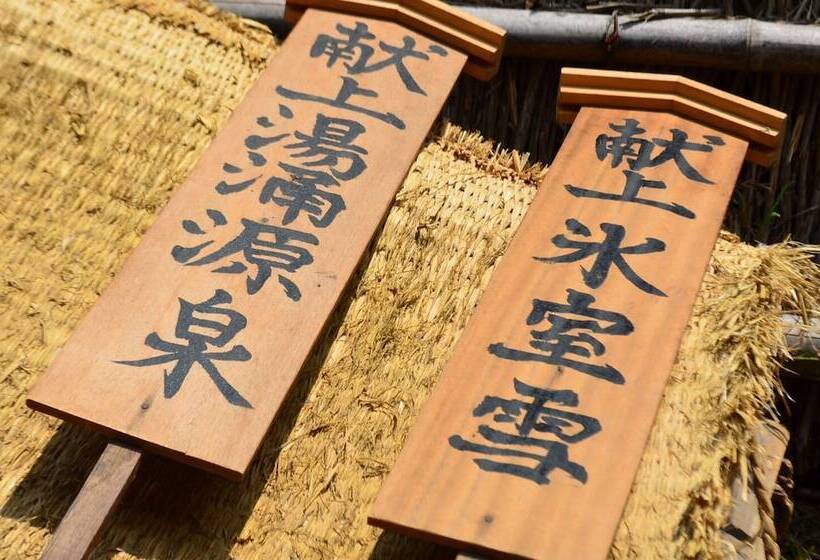 献上氷室雪
献上湯涌源泉